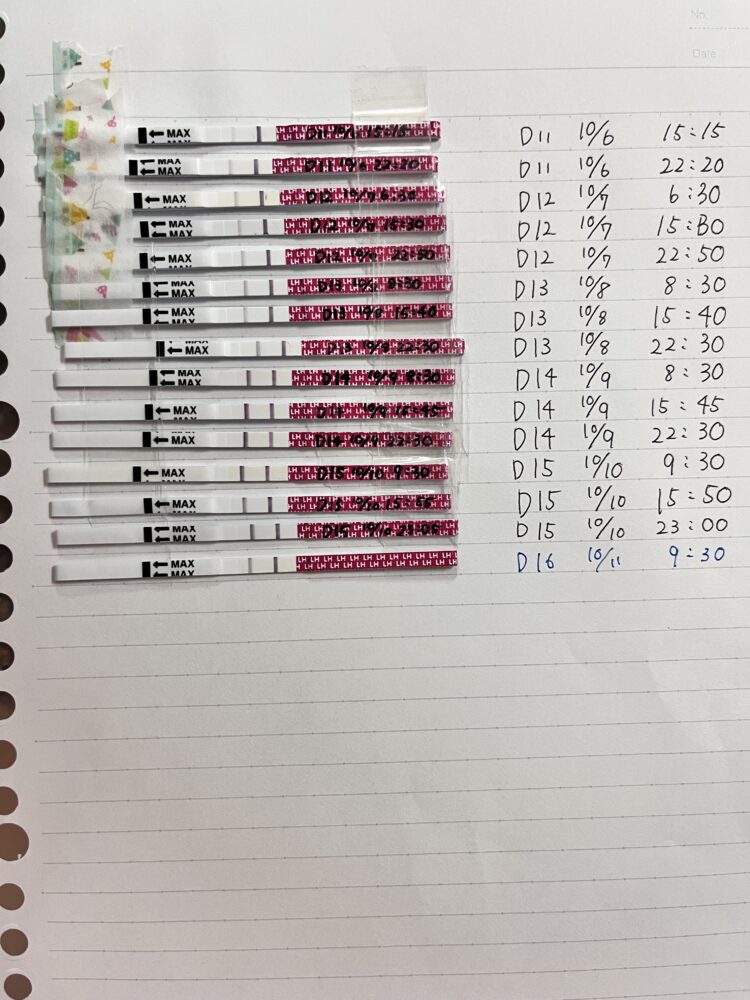 No.
Date
MAX LH LH LH LH LH LH D11 10/6 15:15 D11 10/6 15:15
MAX D11 10/6 22:20 D11 10/6 22:20
MAX D12 10/7 6:30 D12 10/7 6:30
MAX D12 10/7 15:30 D12 10/7 15:30
MAX D12 22:50 D12 10/7 22:50
MAX D13 8:30 D13 10/8 8:30
MAX D13 10/8 15:40 D13 10/8 15:40
MAX 10/8 22:30 D13 10/8 22:30
MAX D14 10/9 8:30 D14 10/9 8:30
MAX D14 10/9 15:45 D14 10/9 15:45
MAX D14 10/9 22:30 D14 10/9 22:30
MAX D15 10/10 9:30 D15 10/10 9:30
MAX D15 10/10 15:50 D15 10/10 15:50
MAX D15 10/10 23:05 D15 10/10 23:00
MAX LH LH LH LH LH LH LH LH LH D16 10/11 9:30